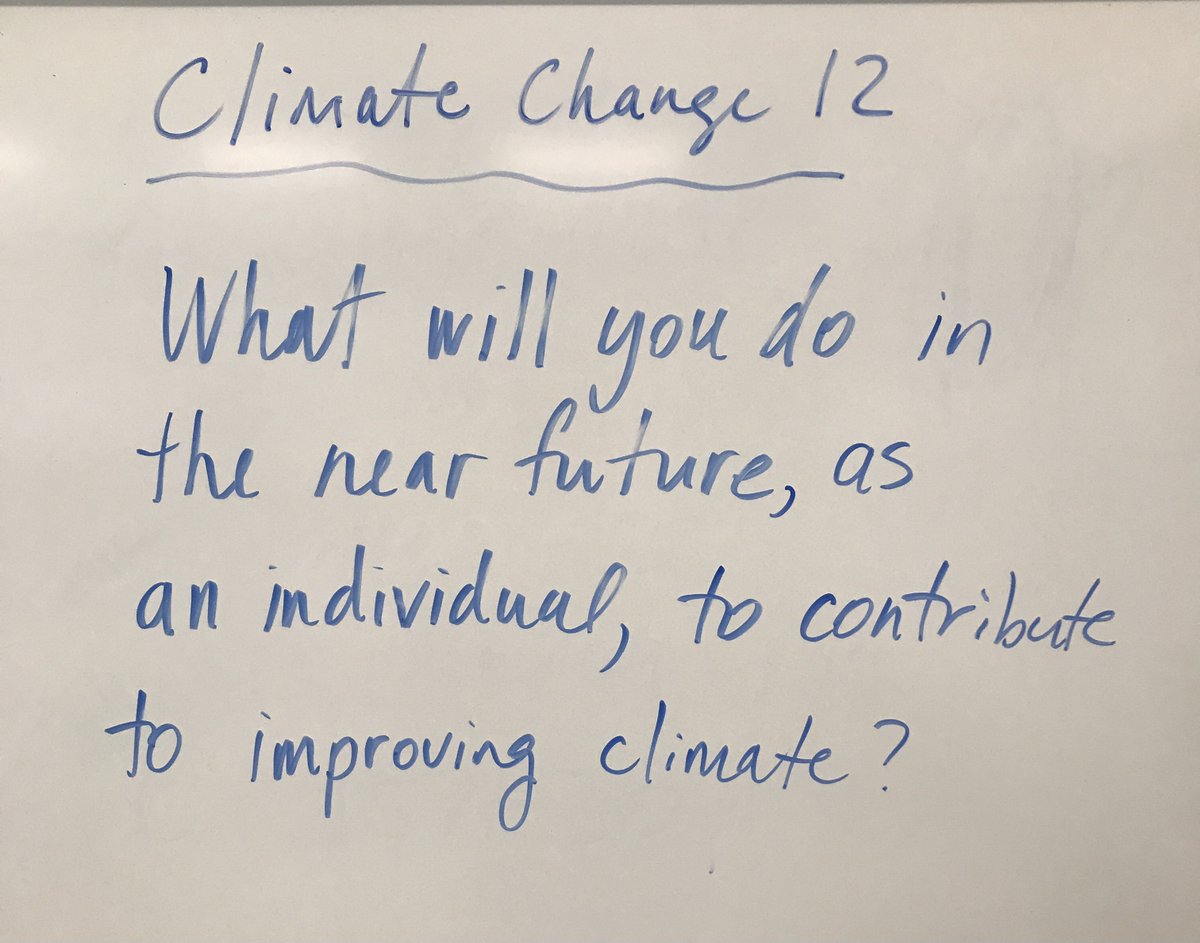 Climate Change 12
What will you do in
the near future, as
an individual, to contribute
to improving climate?